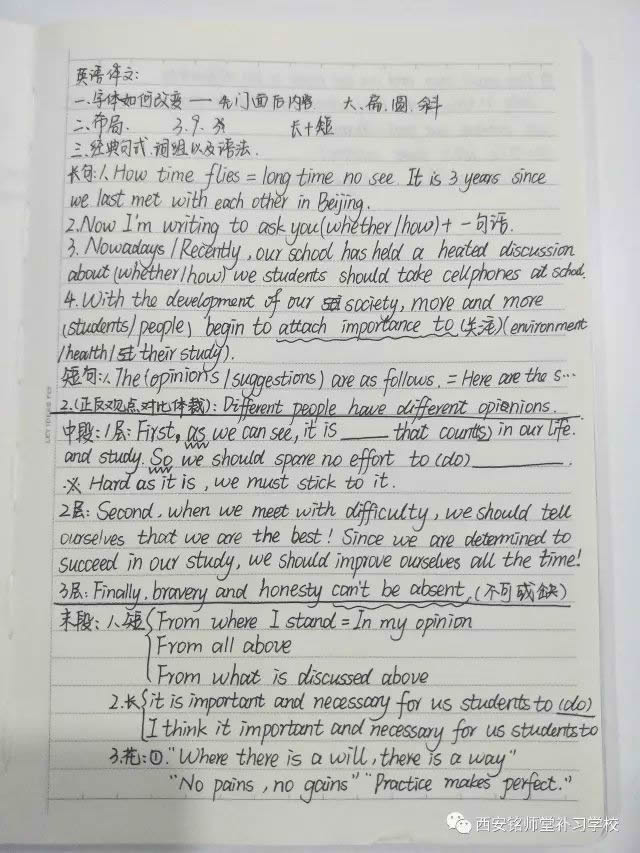 英语译文:
一.字体如何改变 — 先门面后内容 大.扁.圆.斜
二.布局. 3.9.
长+短
三.经典句式.词组以及语法.
长句:1.How time flies = long time no see. It is 3 years since
we last met with each other in Beijing.
2.Now I'm writing to ask you(whether/how)+一句话.
3. Nowadays/Recently, our school has held a heated discussion
about(whether/how) we students should take cellphones at school.
4.With the development of our society, more and more
(students/people) begin to attach importance to (关注)(environment
/health/ their study).
短句:1.The(opinions/suggestions) are as follows. = Here are the s…
2.(正反观点对比体裁): Different people have different opienions.
中段:1层:First, as we can see, it is ____ that count(s) in our life
and study. So we should spare no effort to (do) ________.
※ Hard as it is, we must stick to it.
2层: Second, when we meet with difficulty, we should tell
ourselves that we are the best! Since we are determined to
succeed in our study, we should improve ourselves all the time!
3层:Finally, bravery and honesty can't be absent.(不可或缺)
末段:1.短{From where I stand = In my opinion
From all above
From what is discussed above
2.长{it is important and necessary for us students to (do)
I think it important and necessary for us students to
3.花:①."Where there is a will, there is a way"
"No pains, no gains" "Practice makes perfect."
西安铭师堂补习学校